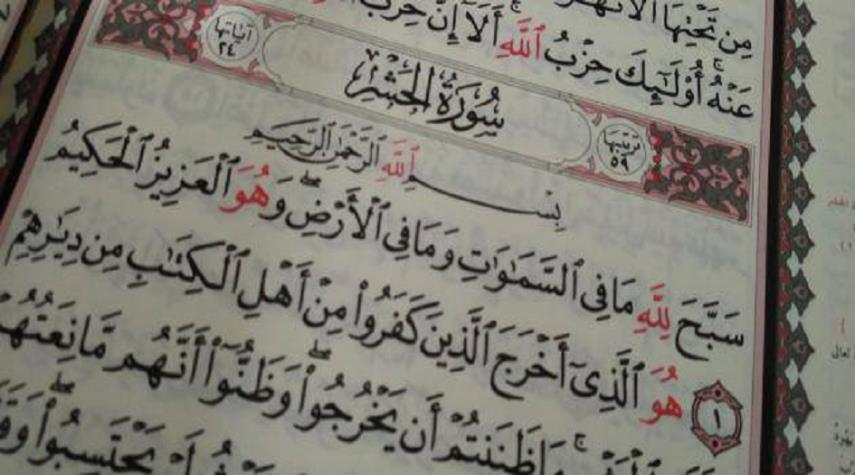 مِن تَحْتِهَا ٱلْأَنْهَٰرُ
عَنْهُ أُو۟لَٰٓئِكَ حِزْبُ ٱللَّهِ أَلَآ إِنَّ حِزْبَ
ترتيبها ٥٩ سُورَةُ الحَشْرِ آياتها ٢٤
بِسْمِ ٱللَّهِ ٱلرَّحْمَٰنِ ٱلرَّحِيمِ
سَبَّحَ لِلَّهِ مَا فِى ٱلسَّمَٰوَٰتِ وَمَا فِى ٱلْأَرْضِ وَهُوَ ٱلْعَزِيزُ ٱلْحَكِيمُ
١ هُوَ ٱلَّذِىٓ أَخْرَجَ ٱلَّذِينَ كَفَرُوا۟ مِنْ أَهْلِ ٱلْكِتَٰبِ مِن دِيَٰرِهِمْ
مَا ظَنَنتُمْ أَن يَخْرُجُوا۟ وَظَنُّوٓا۟ أَنَّهُم مَّانِعَتُهُمْ
يَحْتَسِبُوا۟
تعالى